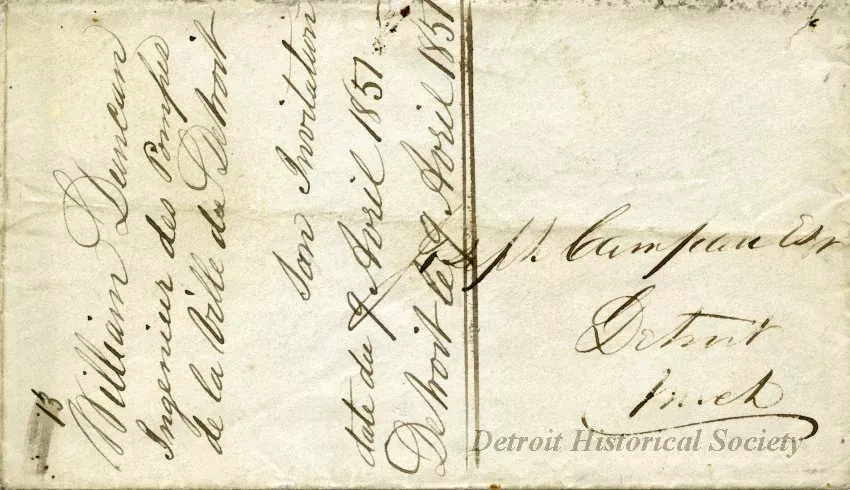 13
William Duncan
Ingenieur des Pompes
de la Ville du Detroit
Son Invitation
date du 9 Avril 1851
Detroit le 9 Avril 1851
Joseph Campau Esqr
Detroit
Mich
Detroit Historical Society